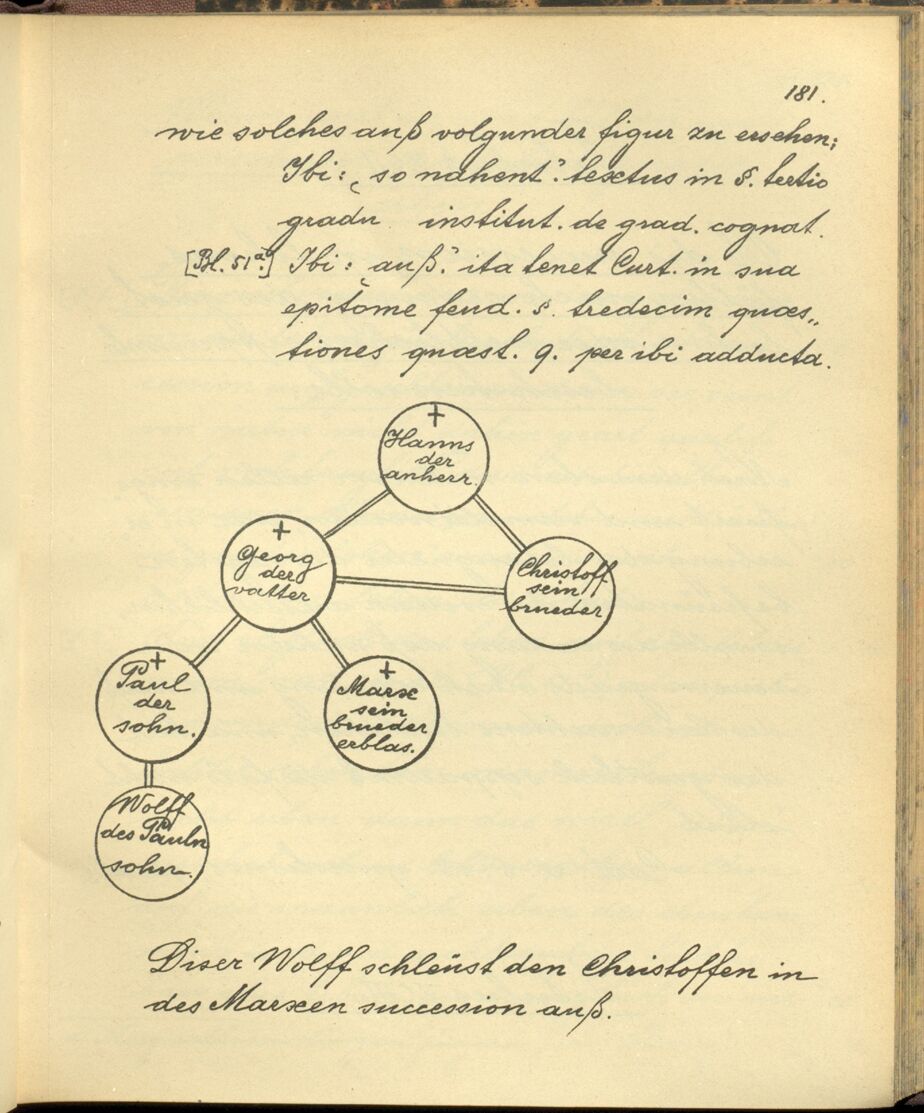 181.
wie solches auß volgunder figur zu ersehen;
Ibi: „so nahent". textus in §. tertio
gradu institut. de grad. cognat.
[Bl. 51a.] Ibi: „auß". ita tenet Curt. in sua
epitome feud. §. tredecim quæs„
tiones quæst. 9. per ibi adducta.
+
Hanns
der
anherr.
+
Georg
der
vatter
Christoff
sein
brueder
+
Paul
der
sohn.
+
Marx
sein
brueder
erblas.
Wolff
des Pauln
sohn.
Diser Wolff schleüst den Christoffen in
des Marxen succession auß.